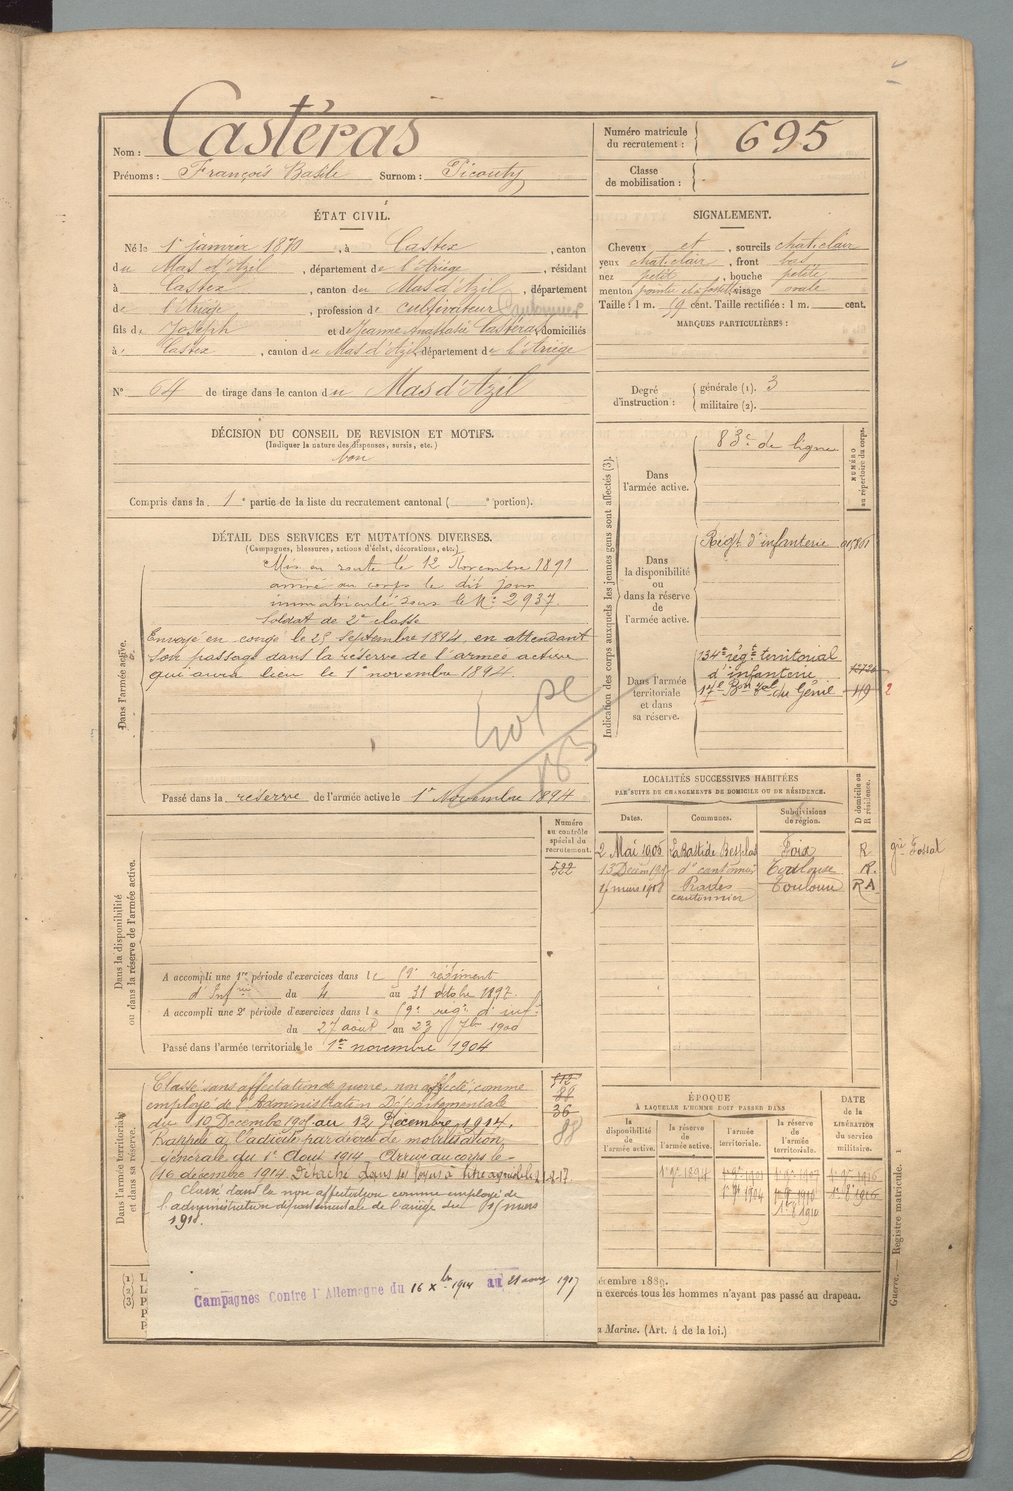 Nom : Castéras
Prénoms : François Basile Surnom : Picouty
Numéro matricule du recrutement : 695
Classe de mobilisation :
ÉTAT CIVIL.
Né le 1er janvier 1870, à Castex, canton
du Mas d'Azil, département de l'Ariège, résidant
à Castex, canton du Mas d'Azil, département
de l'Ariège, profession de cultivateur Cantonnier
fils de Joseph et de Jeanne Anastasie Castéras, domiciliés
à Castex, canton du Mas d'Azil, département de l'Ariège
N° 64 de tirage dans le canton du Mas d'Azil
SIGNALEMENT.
Cheveux et, sourcils chat. clair
yeux chat. clair, front bas
nez petit, bouche petite
menton visage ovale
Taille : 1 m. 59 cent. Taille rectifiée : 1 m. cent.
MARQUES PARTICULIÈRES :
Degré d'instruction : générale (1). 3
militaire (2).
DÉCISION DU CONSEIL DE REVISION ET MOTIFS.
(Indiquer la nature des dispenses, sursis, etc.)
bon
Compris dans la 1e partie de la liste du recrutement cantonal ( e portion).
DÉTAIL DES SERVICES ET MUTATIONS DIVERSES.
(Campagnes, blessures, actions d'éclat, décorations, etc.)
Dans l'armée active.
Mis en route le 12 Novembre 1891
arrivé au corps le dit jour
immatriculé sous le N° 2937.
Soldat de 2e classe
Envoyé en congé le 25 Septembre 1894, en attendant
son passage dans la réserve de l'armée active
qui aura lieu le 1er novembre 1894.
Passé dans la réserve de l'armée active le 1er Novembre 1894
Indication des corps auxquels les jeunes gens sont affectés (3).
NUMÉRO au répertoire du corps.
Dans l'armée active.
83e de ligne
Dans la disponibilité ou dans la réserve de l'armée active.
Régt d'infanterie
Dans l'armée territoriale et dans sa réserve.
134e régt territorial
d'infanterie
17e Bon Tal du Génie 119 2
LOCALITÉS SUCCESSIVES HABITÉES
PAR SUITE DE CHANGEMENTS DE DOMICILE OU DE RÉSIDENCE.
Dates. Communes. Subdivisions de région. D domicile ou R résidence.
2 Mai 1906 La Bastide Besplas Foix R
Toulouse R.
Toulouse RA
cantonnier
Dans la disponibilité ou dans la réserve de l'armée active.
Numéro au contrôle spécial du recrutement.
522
A accompli une 1re période d'exercices dans le 59e régiment
d'Infrie du 4 au 31 octobre 1897.
A accompli une 2e période d'exercices dans le 59e régt d'infie
du 27 août au 23 7bre 1900
Passé dans l'armée territoriale le 1er novembre 1904
Dans l'armée territoriale et dans sa réserve.
Classé sans affectation de guerre, non affecté, comme
employé de l'Administration Départementale
du 10 Décembre au 12 Décembre 1914.
Rappelé à l'activité par décret de mobilisation
Générale du 1er Août 1914. Arrivé au corps le
16 décembre 1914. Détaché dans ses foyers à titre agricole le 21-8-17.
Classé dans la non affectation comme employé de
l'administration départementale de l'ariège du 15 mars
1918.
512
88
36
88
Campagnes Contre l'Allemagne du 16 Xbre 1914 au 21 août 1917
ÉPOQUE
À LAQUELLE L'HOMME DOIT PASSER DANS
la disponibilité de l'armée active. la réserve de l'armée active. l'armée territoriale. la réserve de l'armée territoriale.
DATE de la LIBÉRATION du service militaire.
1er 9bre 1894
1er 9bre 1904
écembre 1889.
n exercés tous les hommes n'ayant pas passé au drapeau.
a Marine. (Art. 4 de la loi.)
Guerre. — Registre matricule. 1